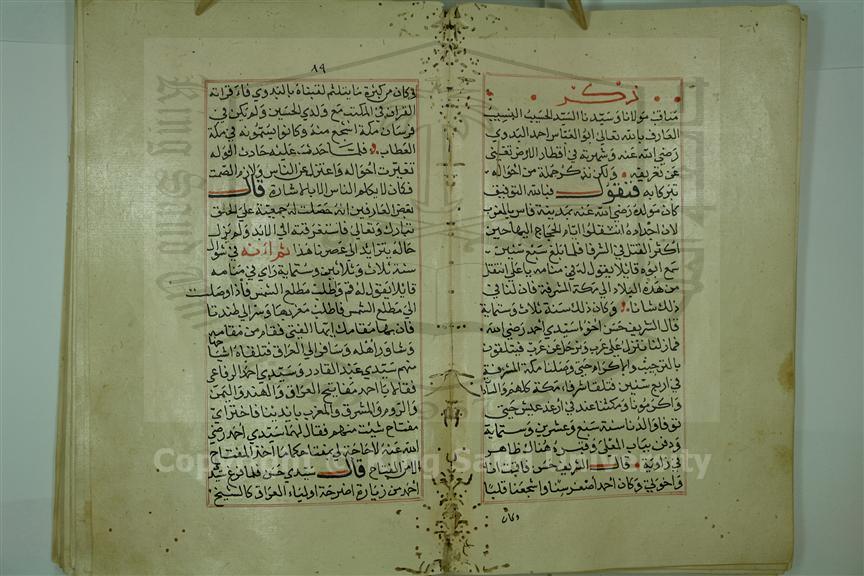 ذكر
مناقب مولانا وسيدنا السيد الحسيب النسيب
العارف بالله تعالى ابو العباس احمد البدوي
رضي الله عنه وشهرته في أقطار الارض تغني
عن تعريفه ولكن نذكر جملة من احواله
تبركا به فنقول وبالله التوفيق
كان مولده رضي الله عنه بمدينة فاس بالمغرب
لان اجداده انتقلوا ايام الحجاج اليها حين
اكثر القتل في الشرفا فلما بلغ سبع سنين
سمع ابوه قائلا يقول له في منامه يا علي انتقل
من هذه البلاد الى مكة المشرفة فان لنا في
ذلك شانا وكان ذلك سنة ثلاث وستماية
قال الشريف حسن اخو السيدي احمد رضي الله
فما زلنا ننزل على عرب ونرحل عن عرب فيتلقونا
بالترحيب والاكرام حتى وصلنا مكة المشرفة
في اربع سنين فتلقانا شرفاء مكة كلهم
واكرمونا ومكثنا عندهم في ارغد عيش حتى
توفي والدنا سنة سبع وعشرين وستماية
ودفن بباب المعلى وقبره هناك ظاهر
في زاوية قال الشريف حسن فاقمت انا
واخوتي وكان احمد اصغر سنا واشجعنا قلبا
وكان
٨٩
وكان من كثرة ما يتلثم لقبناه بالبدوي فاقراته
القران في المكتب مع ولدي الحسين ولم يكن في
فرسان مكة اشجع منه وكانوا يسمونه في مكة
العطاب فلما حدث عليه حادث الوله
تغيرت احواله واعتزل عن الناس ولازم الصمت
فكان لا يكلم الناس الا بالاشارة قال
بعض العارفين انه حصلت له جمعية على الحق
تبارك وتعالى فاستغرقته الى الابد ولم يزل
حاله يتزايد الى عصرنا هذا ثم انه في شوال
سنة ثلاث وثلاثين وستماية راى في منامه
قائلا يقول له قم واطلب مطلع الشمس فاذا وصلت
الى مطلع الشمس فاطلب مغربها وسر الى طندتا
فان بها مقامك ايها الفتى فقام من منامه
وشاور اهله وسافر الى العراق فتلقاه اشياخها
منهم سيدي عبد القادر وسيدي احمد الرفاعي
فقالا يا احمد مفاتيح العراق والهند واليمن
والروم والمشرق والمغرب بايدينا فاختر اي
مفتاح شيت منهم فقال لهما سيدي احمد رضي
الله عنه لا حاجة لي بمفتاحكما ما اخذ المفتاح
الا من الفتاح قال سيدي حسن فلما فرغ سيدي
احمد من زيارة اضرحة اولياء العراق كالشيخ